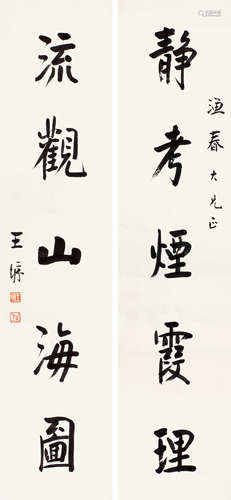 渔春大兄正
静考煙霞理
流觀山海圖
王